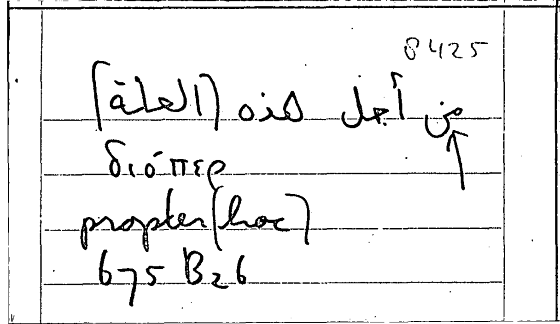 8425
من أجل هذه (العلة)
διόπερ
propter (hoc)
675 B26